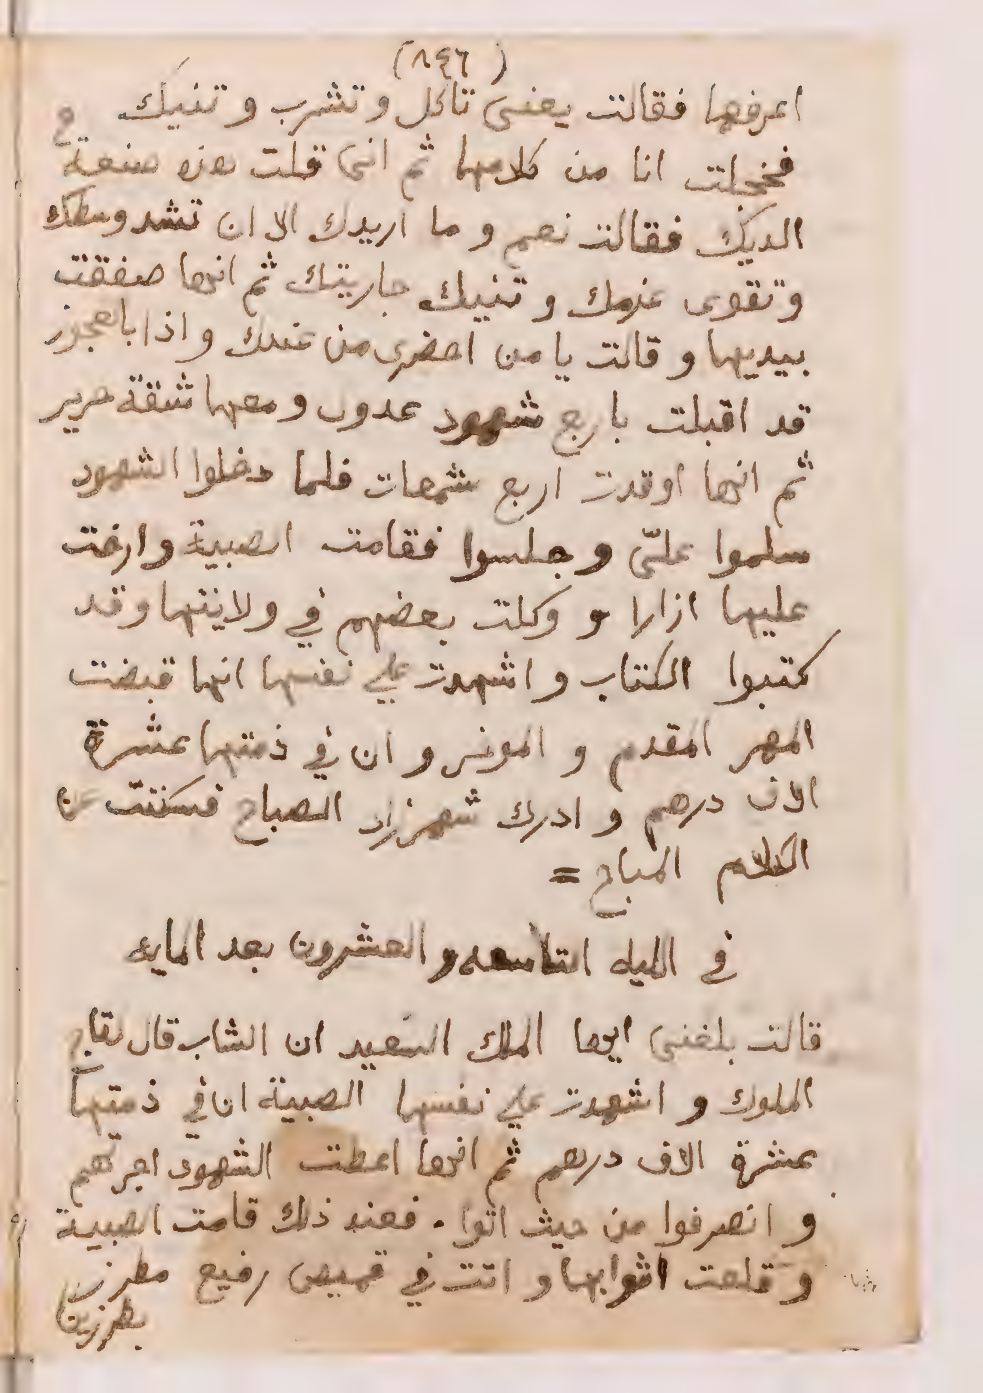 (٨٤٦)
اعرفها فقالت يعنى تاكل وتشرب وتنيك
فخجلت انا من كلامها ثم انى قلت هذه صنعة
الديك فقالت نعم وما اريدك الا ان تشد وسطك
وتقوى عزمك وتنيك جاريتك ثم انها صفقت
بيديها وقالت يا من احضرى من عندك واذا بالعجوز
قد اقبلت باربع شهود عدول ومعها شقة حرير
ثم انها اوقدت اربع شمعات فلما دخلوا الشهود
سلموا علىّ وجلسوا فقامت الصبية وارخت
عليها ازارا ووكلت بعضهم في ولايتها وقد
كتبوا الكتاب واشهدت على نفسها انها قبضت
المهر المقدم و الموخر وان في ذمتها عشرة
الاف درهم وادرك شهرزاد الصباح فسكتت عن
الكلام المباح =
في الليله التاسعه والعشرون بعد المايه
قالت بلغنى ايها الملك السعيد ان الشاب قال
الملوك واشهدت على نفسها الصبية ان في ذمتها
عشرة الاف درهم ثم انها اعطت الشهود اجرتهم
وانصرفوا من حيث اتوا . فعند ذلك قامت الصبية
وقلعت اثوابها واتت في قميص رفيع مطرز
بطرزين